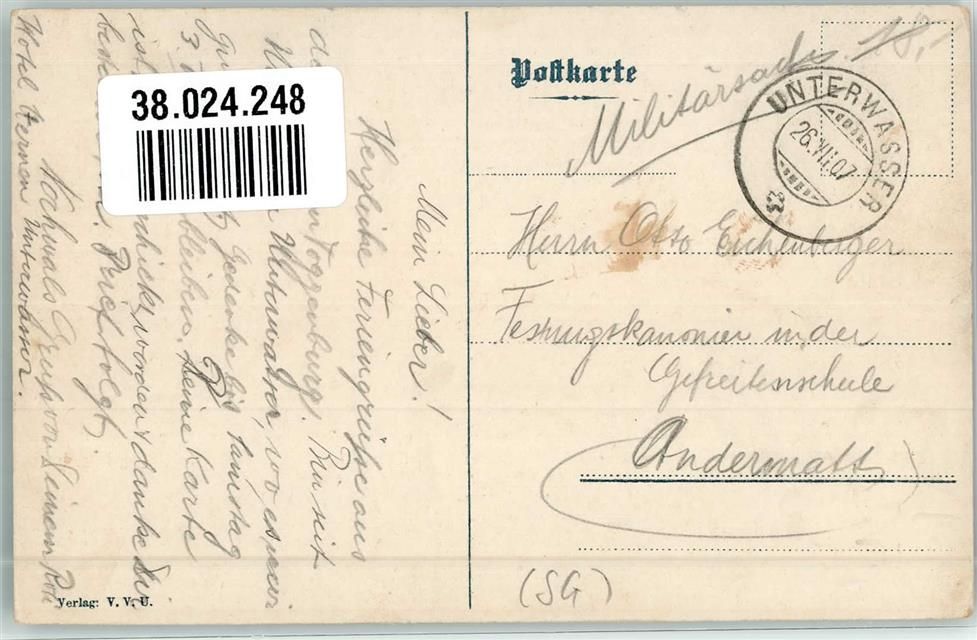 Postkarte
Militärsache
18.-
UNTERWASSER
26.VII.07
38.024.248
Herrn Otto Eichenberger
Festungskanonier in der
Gefreitenschule
Andermatt
(SG)
Mein Lieber!
Herzliche Feriengrüsse aus
Toggenburg! Bin seit
Unterwasser, wo es mir
Gedenke bis Samstag
bleiben. Deine Karte
worden & danke Dir
Brief folgt.
Nochmals Gruss von Deinem
Hotel Sternen Unterwasser.
Verlag: V. V. U.